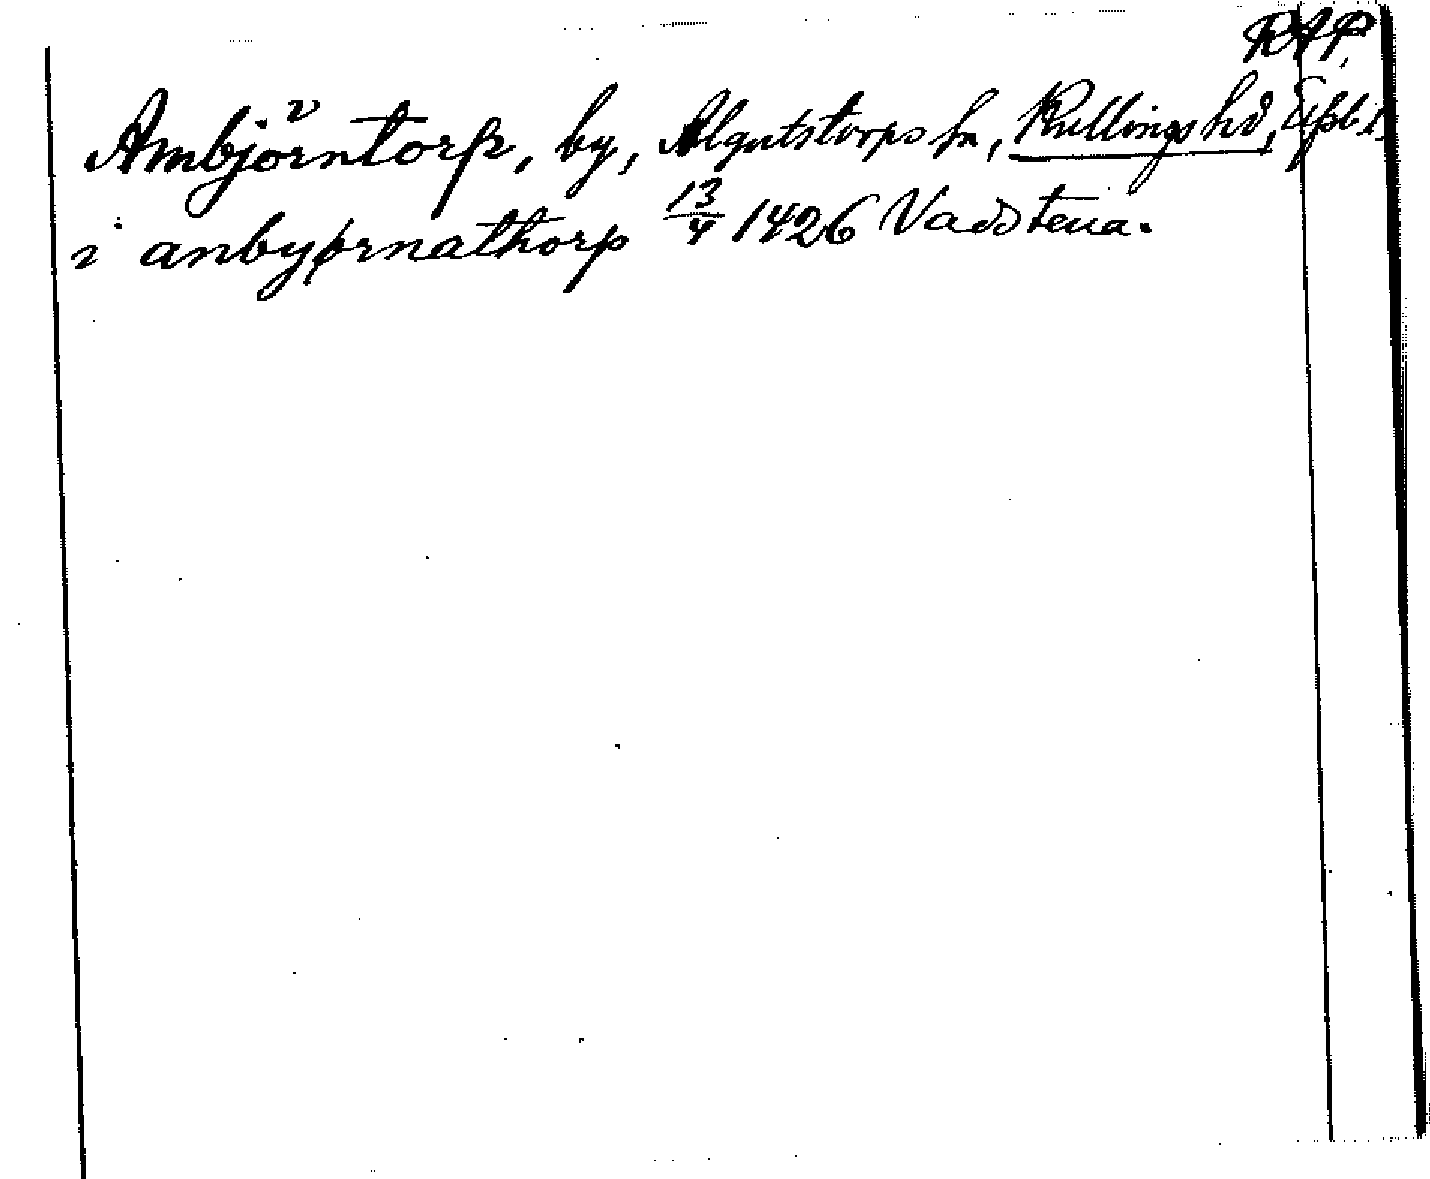 RAP.
Ambjörntorp, by, Algutstorps sn, Kullings hd,
i anbyørnathorp 13/4 1426 Vadstena.